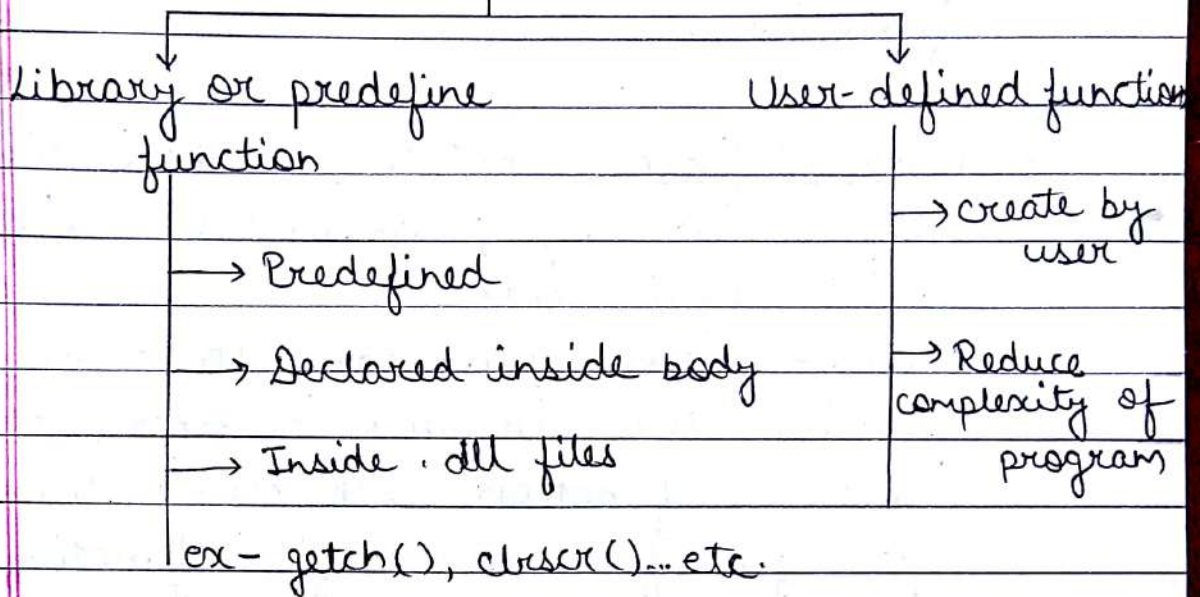 Library or predefine
function
→ Predefined
→ Declared inside body
→ Inside .dll files
ex- getch(), clrscr()... etc.
User-defined function
→ create by
user
→ Reduce
complexity of
program